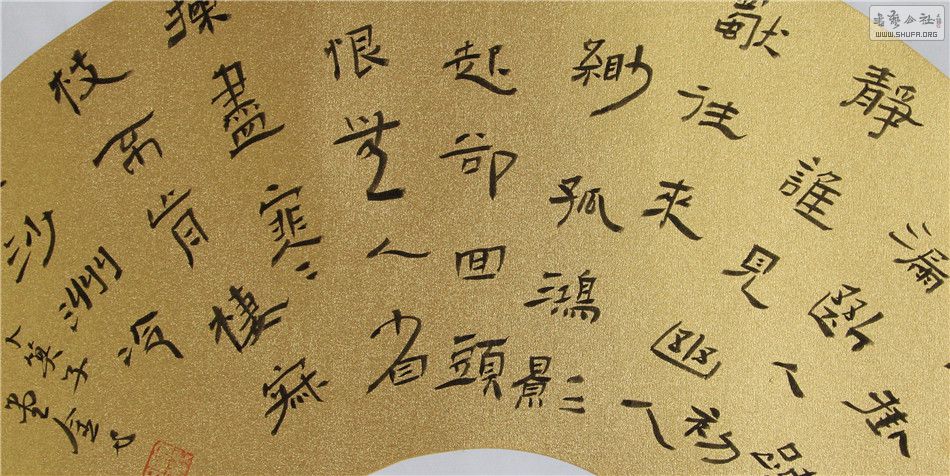 掛
漏斷人初
靜誰見幽人
獨往來
緲孤鴻影
起却回頭
恨無人省
揀盡寒
枝不肯棲寂
沙洲冷
卜算子
書法公社
WWW.SHUFA.ORG